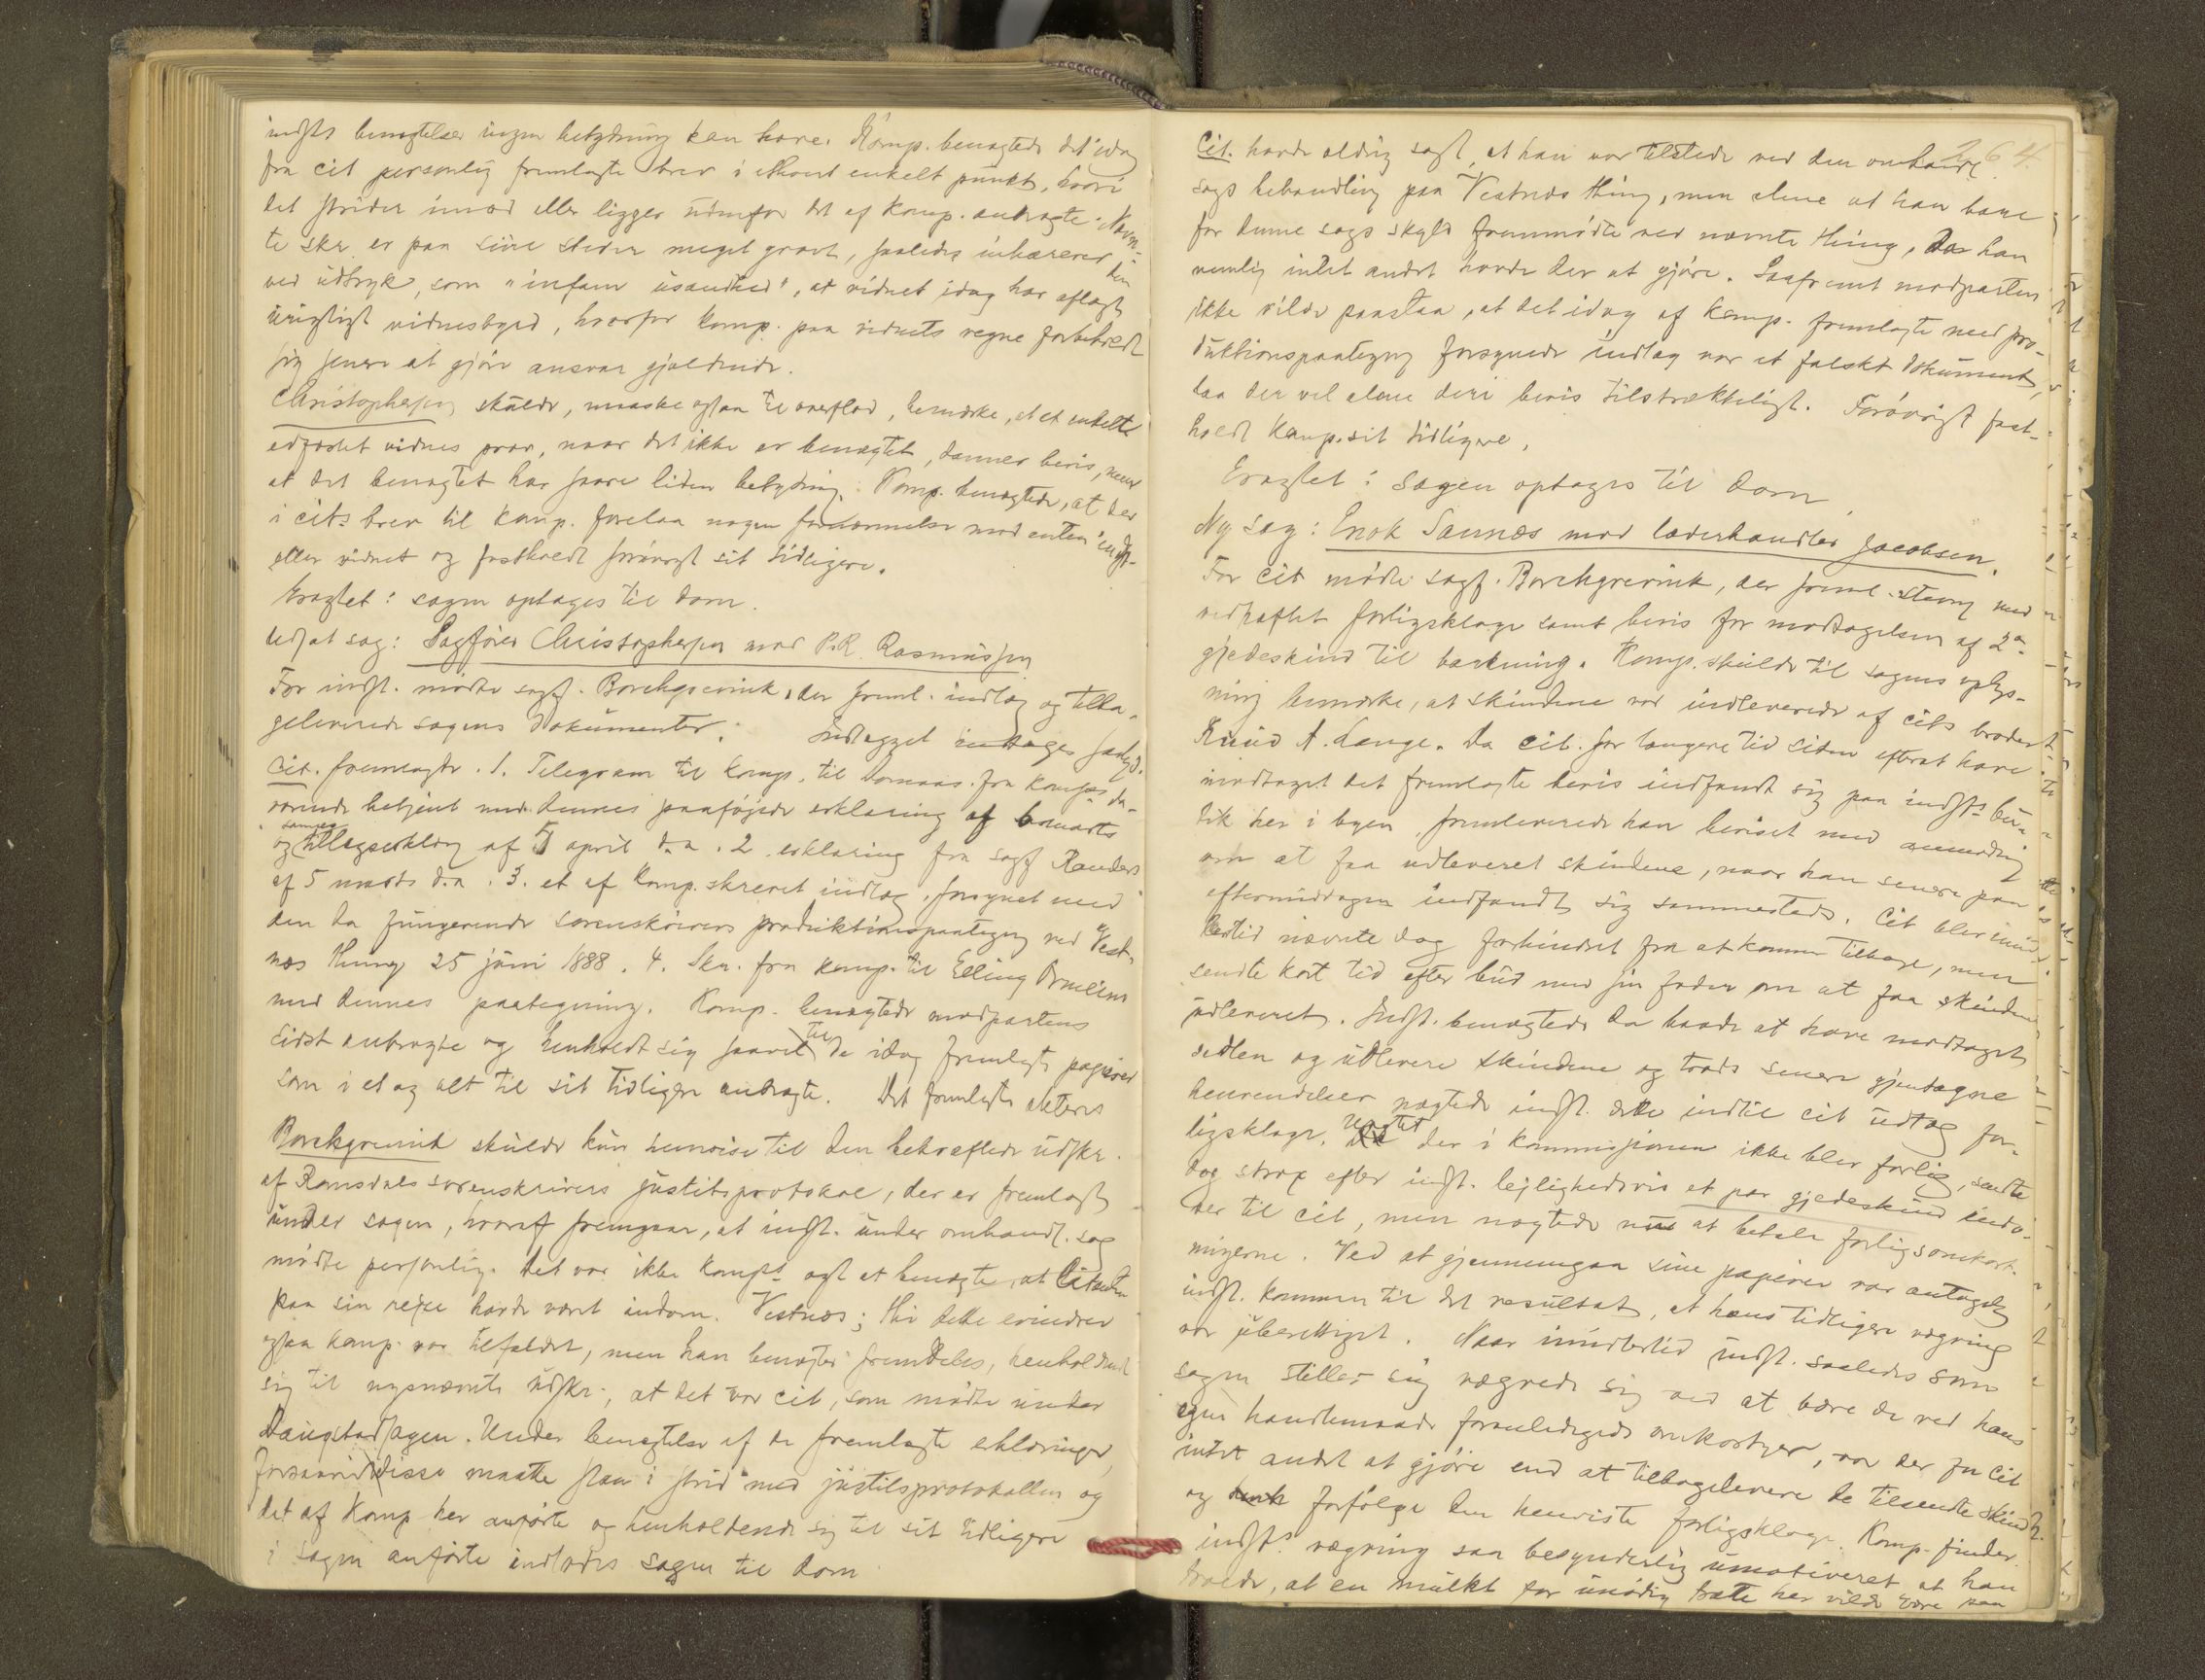 indsts benegtelser ingen betydning kan have. Komp. benegtede det idag
fra cit personlig fremlagte brev i ethvert enkelt punkt, hvori
det strider imod eller ligger udenfor det af komp. anbragte. Nævn-
te skr. er paa sine steder meget grovt, saaledes den
ved udtryk, som "infam usandhed", at vidnet idag har aflagt
urigtigt vidnesbyrd, hvorfor komp. paa vidnets vegne forbeholdt
sig senere at gjøre ansvar gjeldende.
Christophersen skulde, maaske ogsaa til overflod, bemærke, at et enkelt
edfæstet vidnes prov, naar det ikke er benegtet, danner bevis, men
at det benegtet har saare liden betydning. Komp. benegtede, at der
i cits brev til komp. forelaa nogen fornærmelse mod enten indst.
eller vidnet og fastholdt forøvrigt sit tidligere.
Eragtet: sagen optages til dom.
Udsat sag: Sagfører Christophersen mod P.R. Rasmussen
For indst. mødte sagf. Borchgrevink, der freml. indlæg og tilba-
geleverede sagens dokumenter. Indlægget
Cit. fremlagde. 1. Telegram til komp. til Domaas fra komps da-
værende betjent med dennes paaføjede erklæring af
og sammes tillægserklæring af 5 april d.a. 2. erklæring fra sagf Randers
af 5 marts d.a. 3. et af komp. skrevet indlæg, forsynet med
den da fungerende sorenskrivers produktionspaategning ved Vest-
nes thing 25 juni 1888. 4. Skr. fra komp. til Elling
med dennes paategning. Komp. benegtede modpartens
sidst anbragte og henholdt sig saavel til de idag fremlagte papirer
som i et og alt til sit tidligere anbragte. Det fremlagte akteres
Borchgrevink skulde kun henvise til den bekræftede udskr.
af Romsdals sorenskrivers justitsprotokol, der er fremlagt
under sagen, hvoraf fremgaar, at indst. under omhandl. sag
mødte personlig. Det var ikke komps agt at benegte, at Citanten
paa sin rejse havde været indom Vestnes; thi dette erindrer
ogsaa komp. var tilfældet, men han benegter fremdeles, henholdende
sig til nysnævnte udskr., at det var cit, som mødte under
Daugstadsagen. Under benegtelse af de fremlagte erklæringer,
forsaavidt disse maatte staa i strid med justitsprotokollen og
det af komp her anførte og henholdende sig til sit tidligere
i sagen anførte indlodes sagen til dom
264
Cit. havde aldrig sagt, at han var tilstede ved den omhandl.
sags behandling paa Vestnes thing, men alene at han bare
for denne sags skyld fremmødte ved nævnte thing, da han
nemlig intet andet havde der at gjøre. Saafremt modparten
ikke vilde paastaa, at det idag af komp. fremlagte med pro-
duktionspaategning forsynede indlæg var et falskt dokument,
laa der vel alene deri bevis tilstrækkeligt. Forøvrigt fast-
holdt komp. sit tidligere.
Eragtet: Sagen optages til dom
Ny sag: Enok Sannes mod læderhandler Jacobsen.
For cit mødte sagf. Borchgrevink, der freml. stevning med
vedhæftet forligsklage samt bevis for modtagelsen af 2de
gjedeskind til barkning. Komp. skulde til sagens oplys-
ning bemærke, at skindene var indleverede af cits broder
Knud A. Lange. Da cit. for længere tid siden efterat have
modtaget det fremlagte bevis indfandt sig paa indsts bu-
tik her i byen, fremleverede han beviset med anmodning
om at faa udleveret skindene, naar han senere paa
eftermiddagen indfandt sig sammesteds. Cit blev imid-
lertid nævnte dag forhindret fra at komme tilbage, men
sendte kort tid efter bud med sin fader om at faa skindene
udleveret. Indst. benegtede da baade at have modtaget
sedlen og udlevere skindene og trods senere gjentagne
henvendelser negtede indst. dette indtil cit udtog for-
ligsklage. Uagtet der i kommissionen ikke blev forlig, sendte
dog strax efter indst. lejlighedsvis et par gjedeskind indo-
ver til cit, men negtede at betale forligsomkost-
ningerne. Ved at gjennemgaa sine papirer var antagelig
indst. kommen til det resultat, at hans tidligere vægring
var uberettiget. Naar imidlertid indst. saaledes som
sagen stiller sig vægrede sig ved at bære de ved hans
egen handlemaade foranledigede omkostninger, var der for cit
intet andet at gjøre end at tilbagelevere de tilsendte skind
og forfølge den henviste forligsklage. Komp. finder
indsts vægring saa besynderlig umotiveret, at han
troede, at en mulkt for unødig trætte her vilde være paa